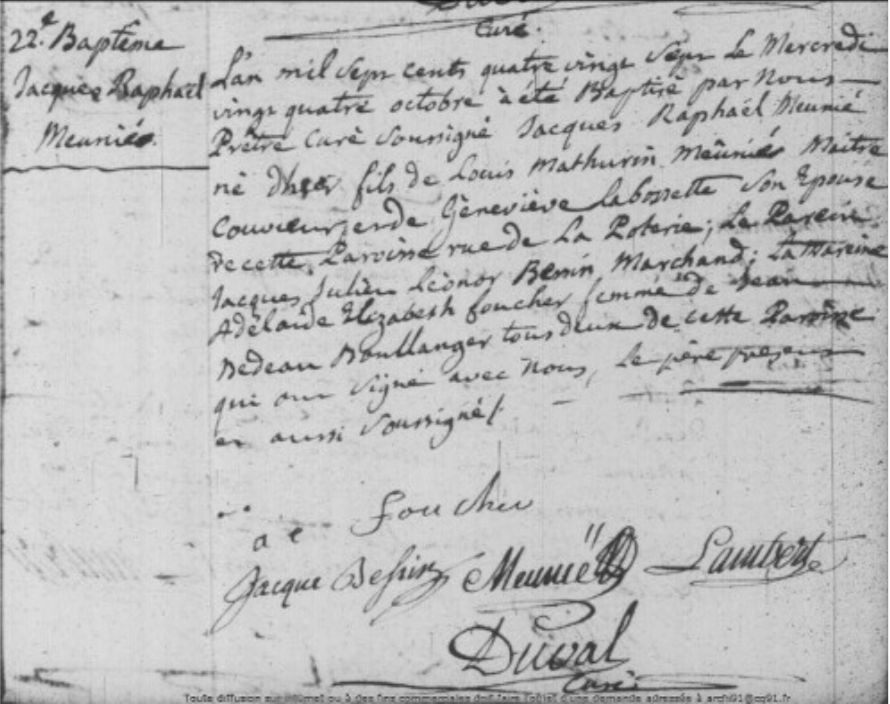 Duval
Curé.
22.e Baptême
Jacques Raphaël
Meuniés.
L'an mil sept cents quatre vingt sept le Mercredi
vingt quatre octobre à été Baptisé par Nous
Prêtre Curé soussigné Jacques Raphaël Meunié
né d'hier fils de Louis Mathurin Meûniés Maitre
Couvreur, et de Gèneviève Labossette son Epouse
de cette Paroisse rue de La Poterie; Le Parein
Jacques Julien Lèonor Bessin, Marchand; La Mareine
Adélaïde Elizabeth foucher femme de Jean
Bedeau Boullanger tous deux de cette Paroisse
qui ont signé avec Nous, Le père present
et aussi soussigné/.
a e foucher
Jacque Bessin Meunié Lambert
Duval
Curé.
Toute diffusion sur internet ou à des fins commerciales doit faire l'objet d'une demande adressée à archi91@cg91.fr